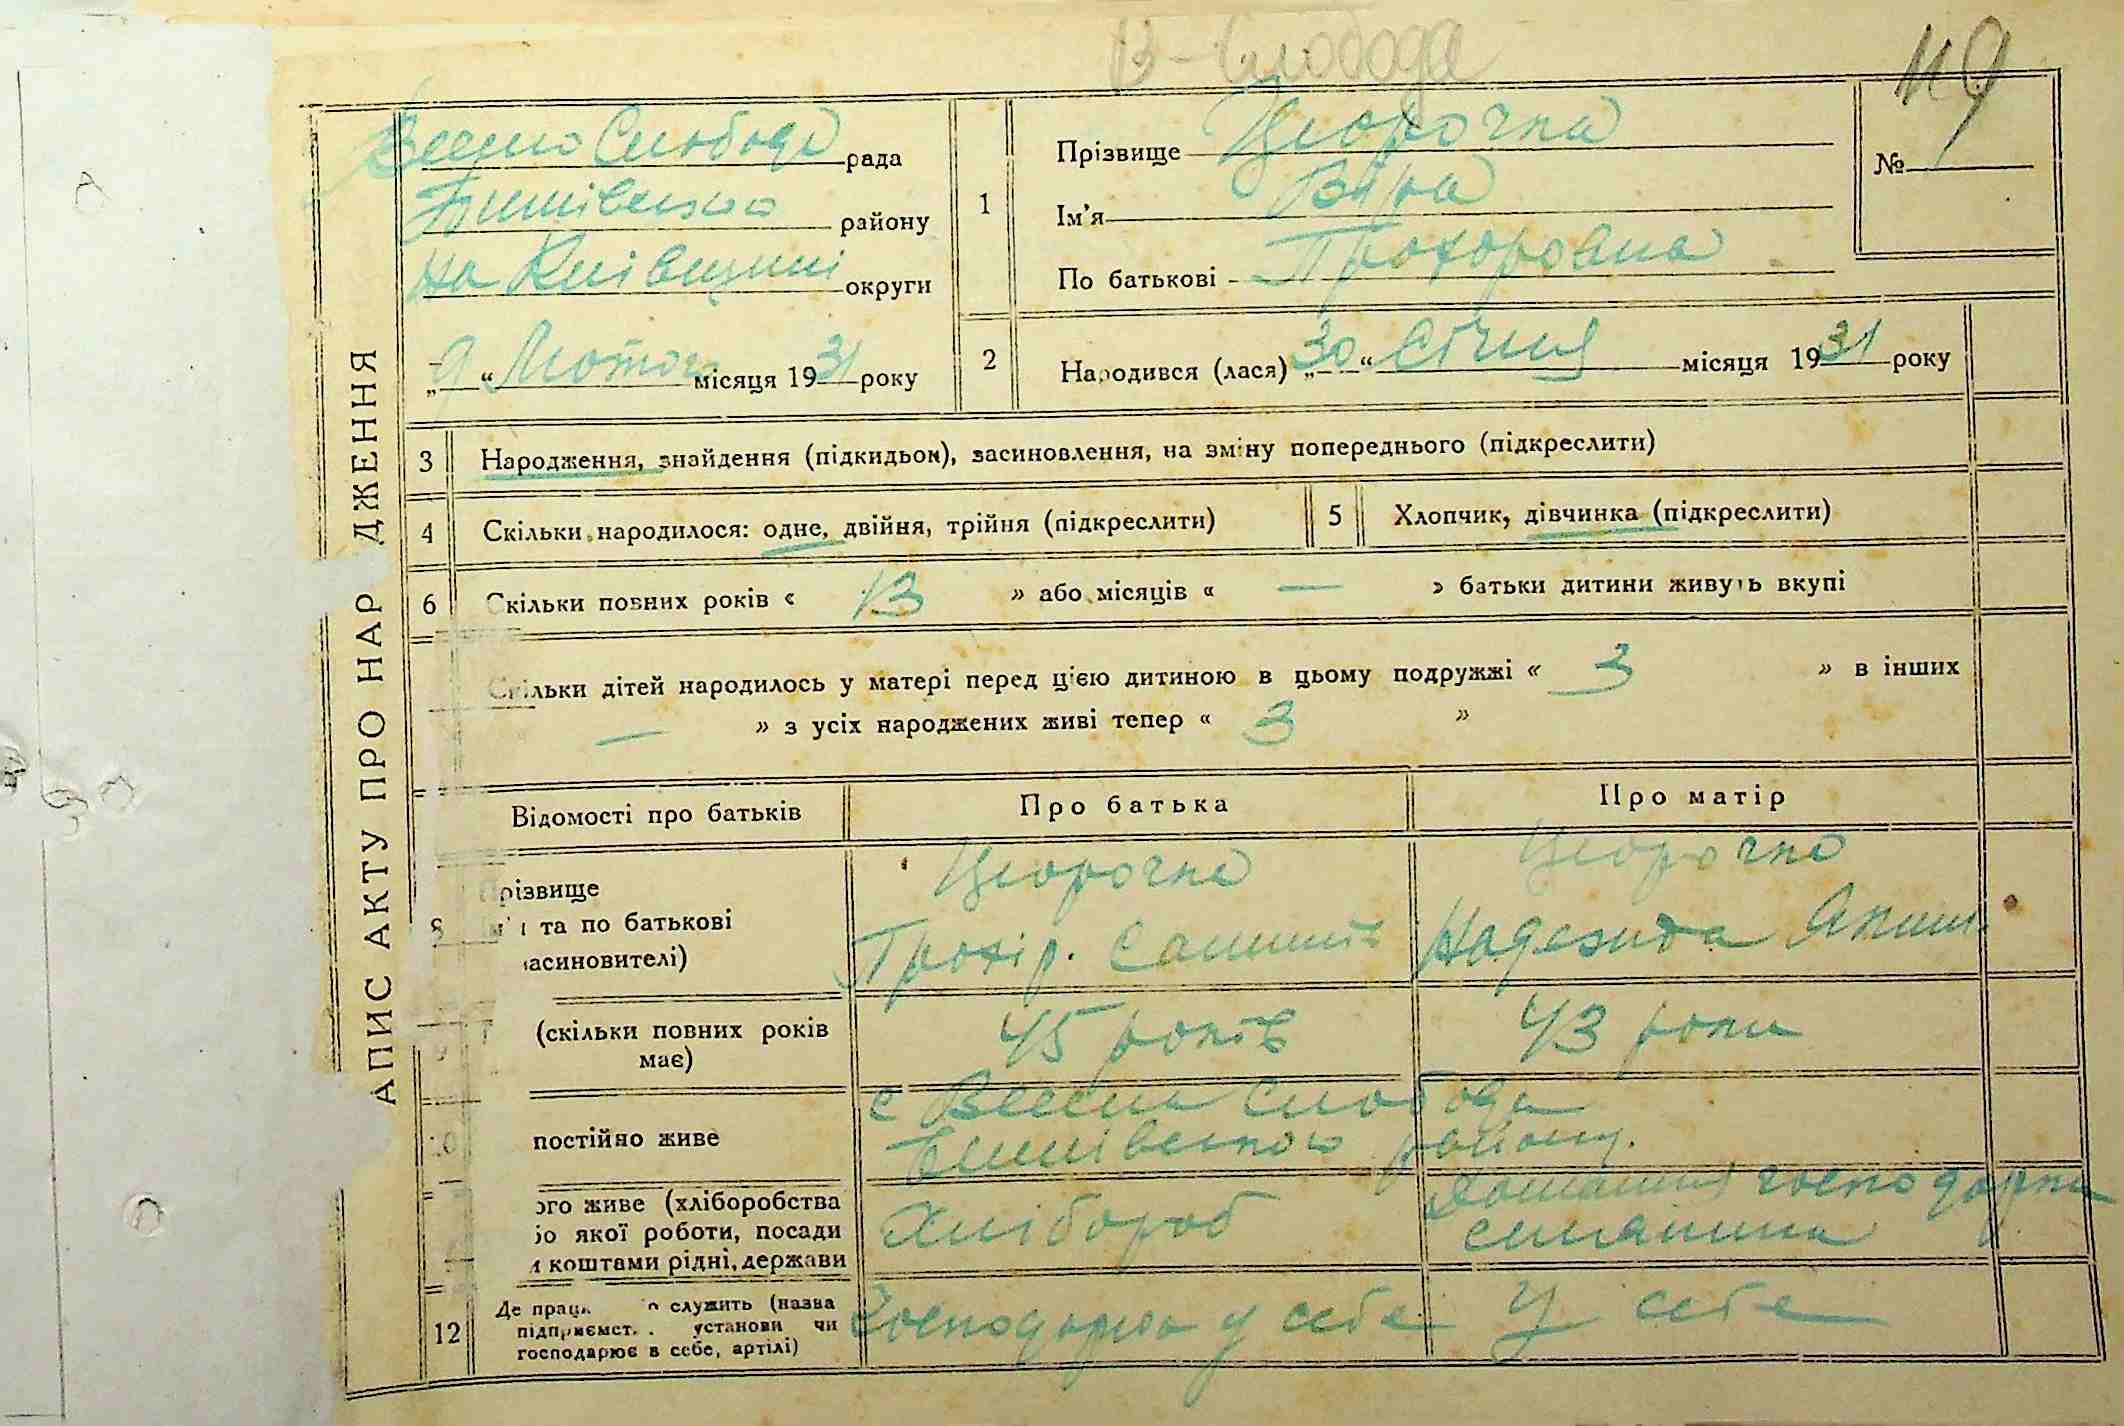 В-Слобода
119
Весело Слобода рада
Бишівського району
на Київщині округи
„9“ Лютого місяця 1931 року
1
Прізвище Цюрочка
Ім'я Віра
По батькові Прохоровна
№
2
Народився (лася) „30“ Січня місяця 1931 року
АПИС АКТУ ПРО НАР ДЖЕННЯ
3 Народження, знайдення (підкидьок), засиновлення, на зміну попереднього (підкреслити)
4 Скільки народилося: одне, двійня, трійня (підкреслити)
5 Хлопчик, дівчинка (підкреслити)
6 Скільки повних років « 13 » або місяців « — » батьки дитини живуть вкупі
Скільки дітей народилось у матері перед цією дитиною в цьому подружжі « 3 » в інших
— » з усіх народжених живі тепер « 3 »
Відомості про батьків Про батька Про матір
8 Прізвище
та по батькові
асиновителі)
Цюрочка
Прохір.
Цюрочка
Надежида Яким.
(скільки повних років
має)
45 років
43 роки
постійно живе
с Весела Слобода
Бишівського району.
ого живе (хліборобства
бо якої роботи, посади
коштами рідні, держави
Хлібороб
Домашня господарка
селянина
12 Де прац служить (назва
підприємст. установи чи
господарює в себе, артілі)
Господарка у себе
У себе